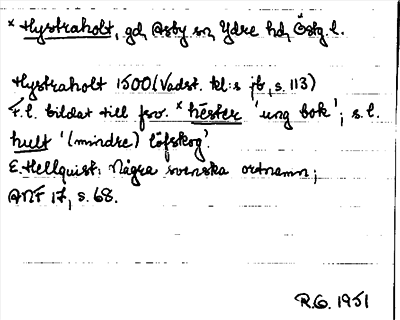 * Hystraholt, gd, Asby sn, Ydre hd, Östg. l.
Hystraholt 1500 (Vadst. kl:s jb, s. 113)
F. l. bildat till fsv. * hēster 'ung bok'; s. l.
hult '(mindre) löfskog'.
E. Hellquist: Några svenska ortnamn;
ANF 17, s. 68.
R.G. 1951